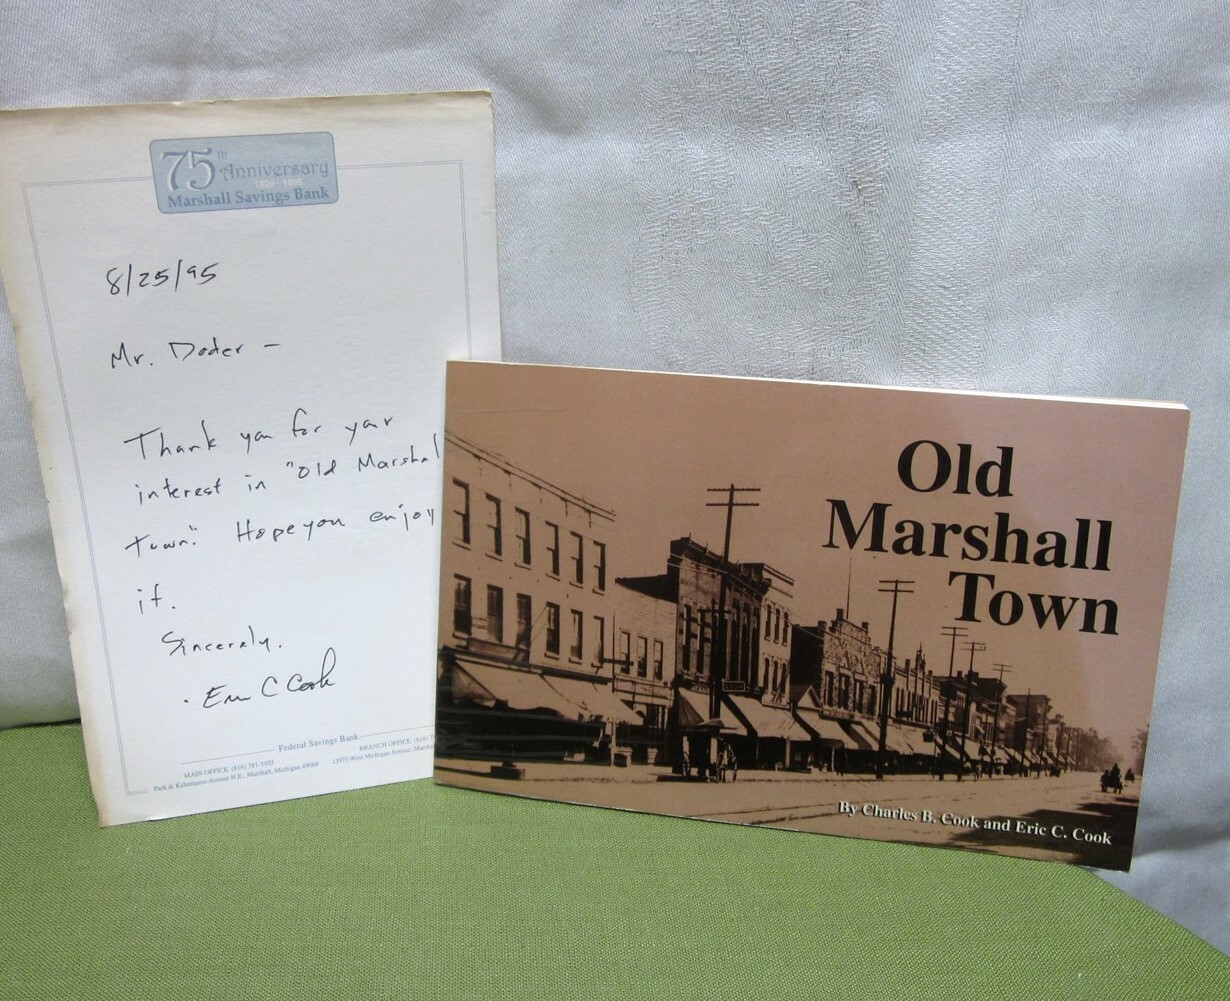 75th Anniversary
1920 - 1995
Marshall Savings Bank
8/25/95
Mr. Doder -
Thank you for your
interest in "Old Marshal
Town." Hope you enjoy
it.
Sincerely,
Eric C Cook
Federal Savings Bank
MAIN OFFICE (616) 781-5103
Park & Kalamazoo Avenue N.E., Marshall, Michigan 49068
BRANCH OFFICE (616)
15975 West Michigan Avenue,
Old
Marshall
Town
By Charles B. Cook and Eric C. Cook